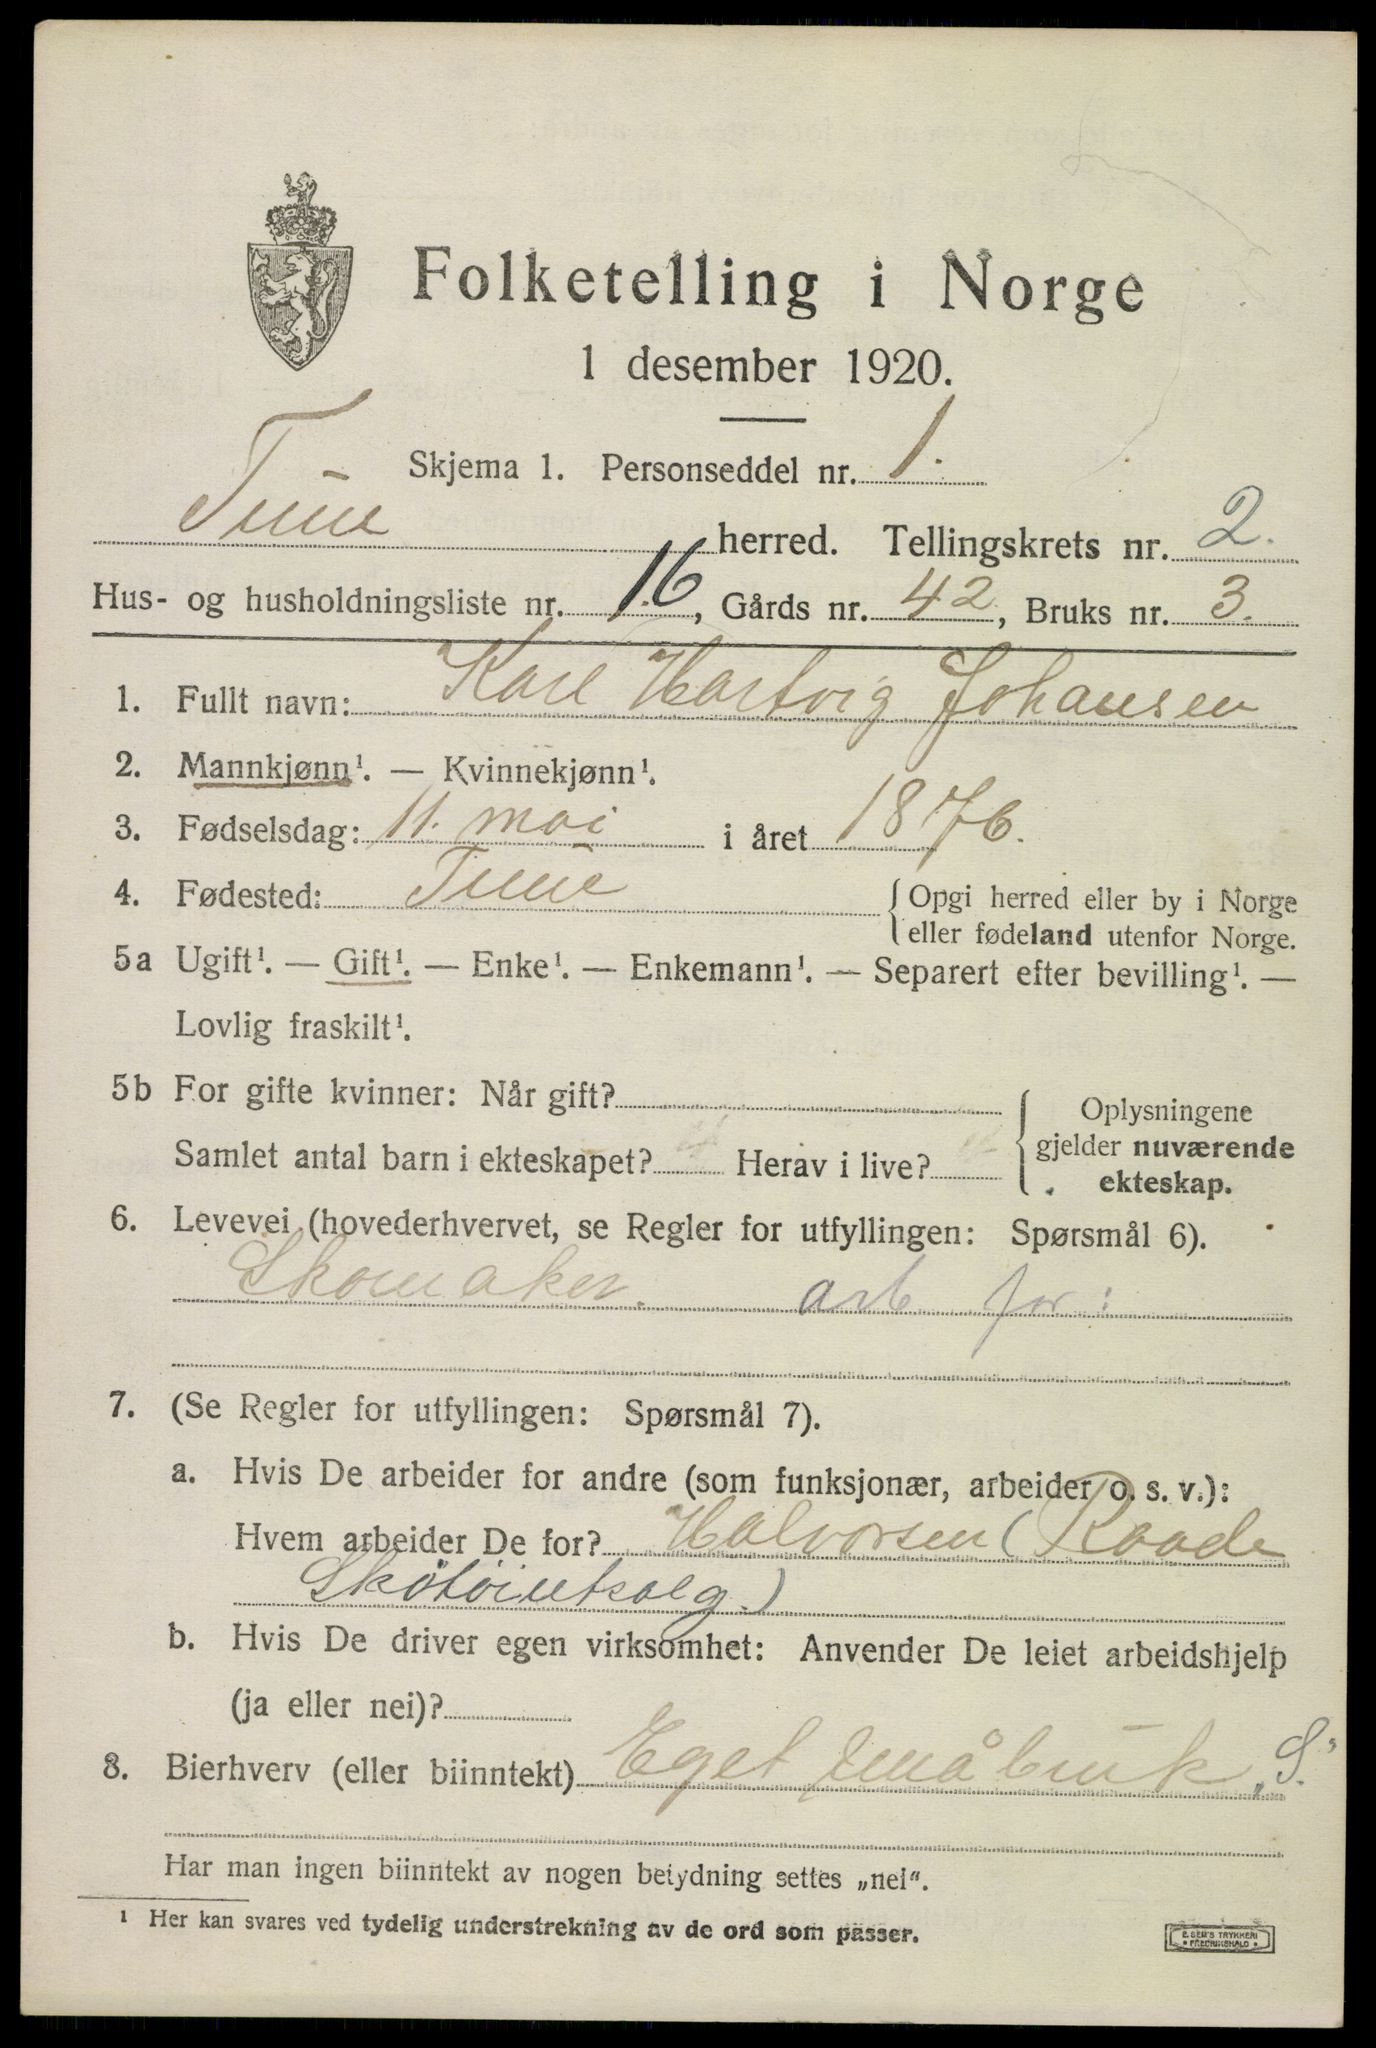 Folketelling i Norge
1 desember 1920.
Skjema 1. Personseddel nr. 1.
Tune herred. Tellingskrets nr. 2.
Hus- og husholdningsliste nr. 16, Gårds nr. 42, Bruks nr. 3.
1. Fullt navn: Karl Hartvig Johansen
2. Mannkjønn¹. — Kvinnekjønn¹.
3. Fødselsdag: 11. mai i året 1876.
4. Fødested: Tune { Opgi herred eller by i Norge
eller fødeland utenfor Norge.
5a Ugift¹. — Gift¹. — Enke¹. — Enkemann¹. — Separert efter bevilling¹. —
Lovlig fraskilt¹.
5b For gifte kvinner: Når gift? { Oplysningene
gjelder nuværende
ekteskap.
Samlet antal barn i ekteskapet? Herav i live?
6. Levevei (hovederhvervet, se Regler for utfyllingen: Spørsmål 6).
Skomaker. arb for:
7. (Se Regler for utfyllingen: Spørsmål 7).
a. Hvis De arbeider for andre (som funksjonær, arbeider o. s. v.):
Hvem arbeider De for? Halvorsen (Raade
Skötöiutsalg.)
b. Hvis De driver egen virksomhet: Anvender De leiet arbeidshjelp
(ja eller nei)?
8. Bierhverv (eller biinntekt) Eget småbruk „S."
Har man ingen biinntekt av nogen betydning settes „nei“.
¹ Her kan svares ved tydelig understrekning av de ord som passer.
E. SEM'S TRYKKERI
• FREDRIKSHALD •